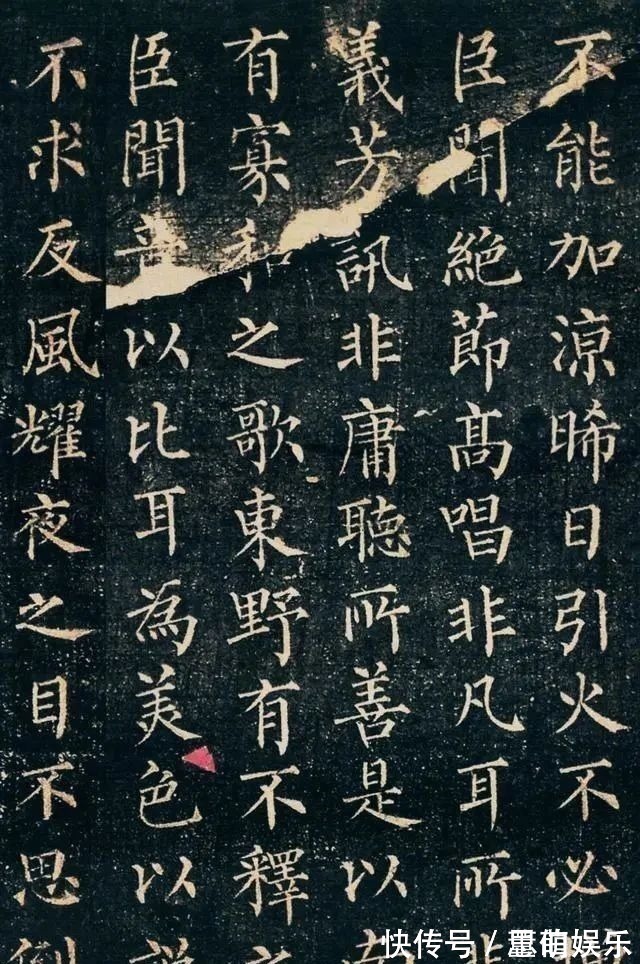 不能加涼晞日引火不必
臣聞絶節髙唱非凡耳所
義芳訊非庸聽所善是以
有寡和之歌東野有不釋之
臣聞音以比耳為美色以
不求反風耀夜之目不思
快传号/萌娱乐